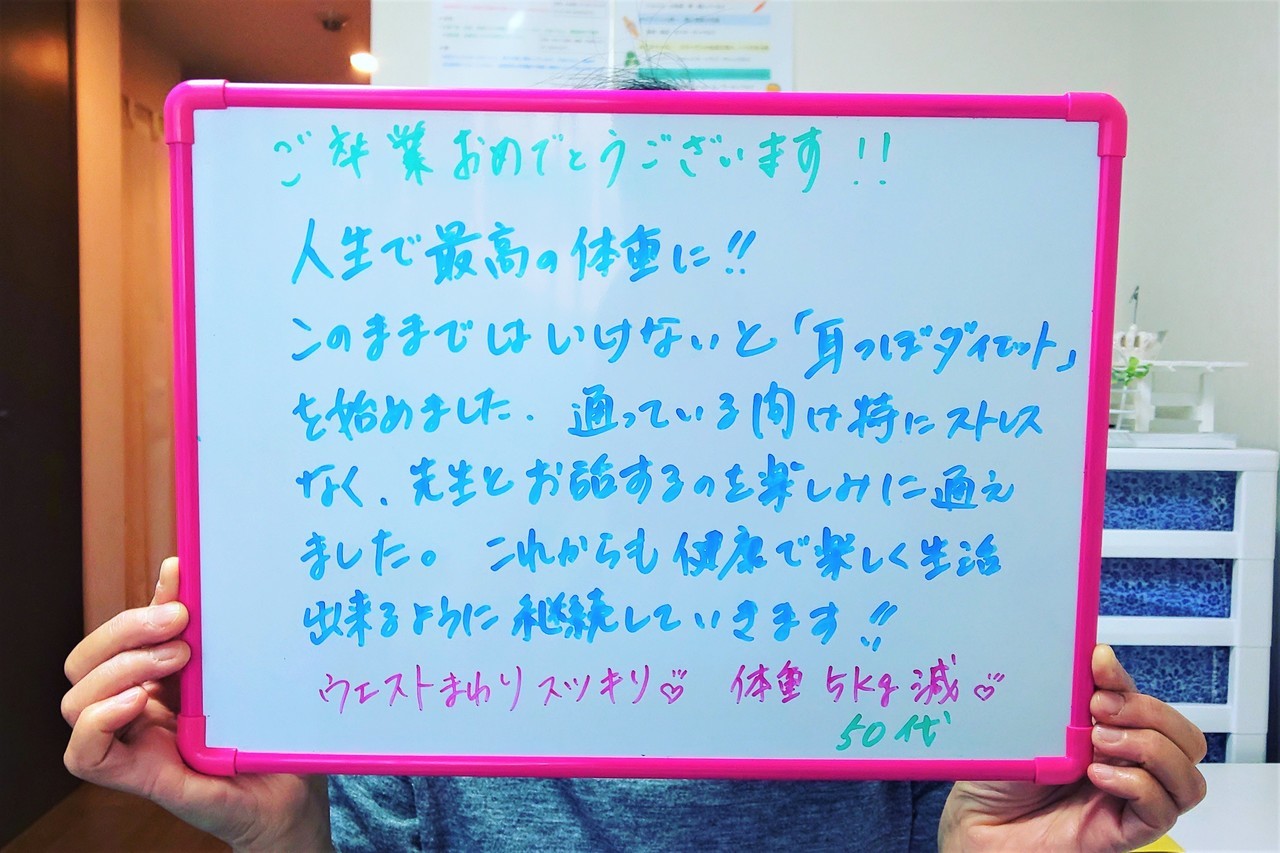 ご卒業おめでとうございます!!
人生で最高の体重に!!
このままではいけないと「耳つぼダイエット」
を始めました. 通っている間は特にストレス
なく、先生とお話するのを楽しみに通え
ました。 これからも健康で楽しく生活
出来るように継続していきます!!
ウエストまわりスッキリ♡ 体重5kg減♡
50代